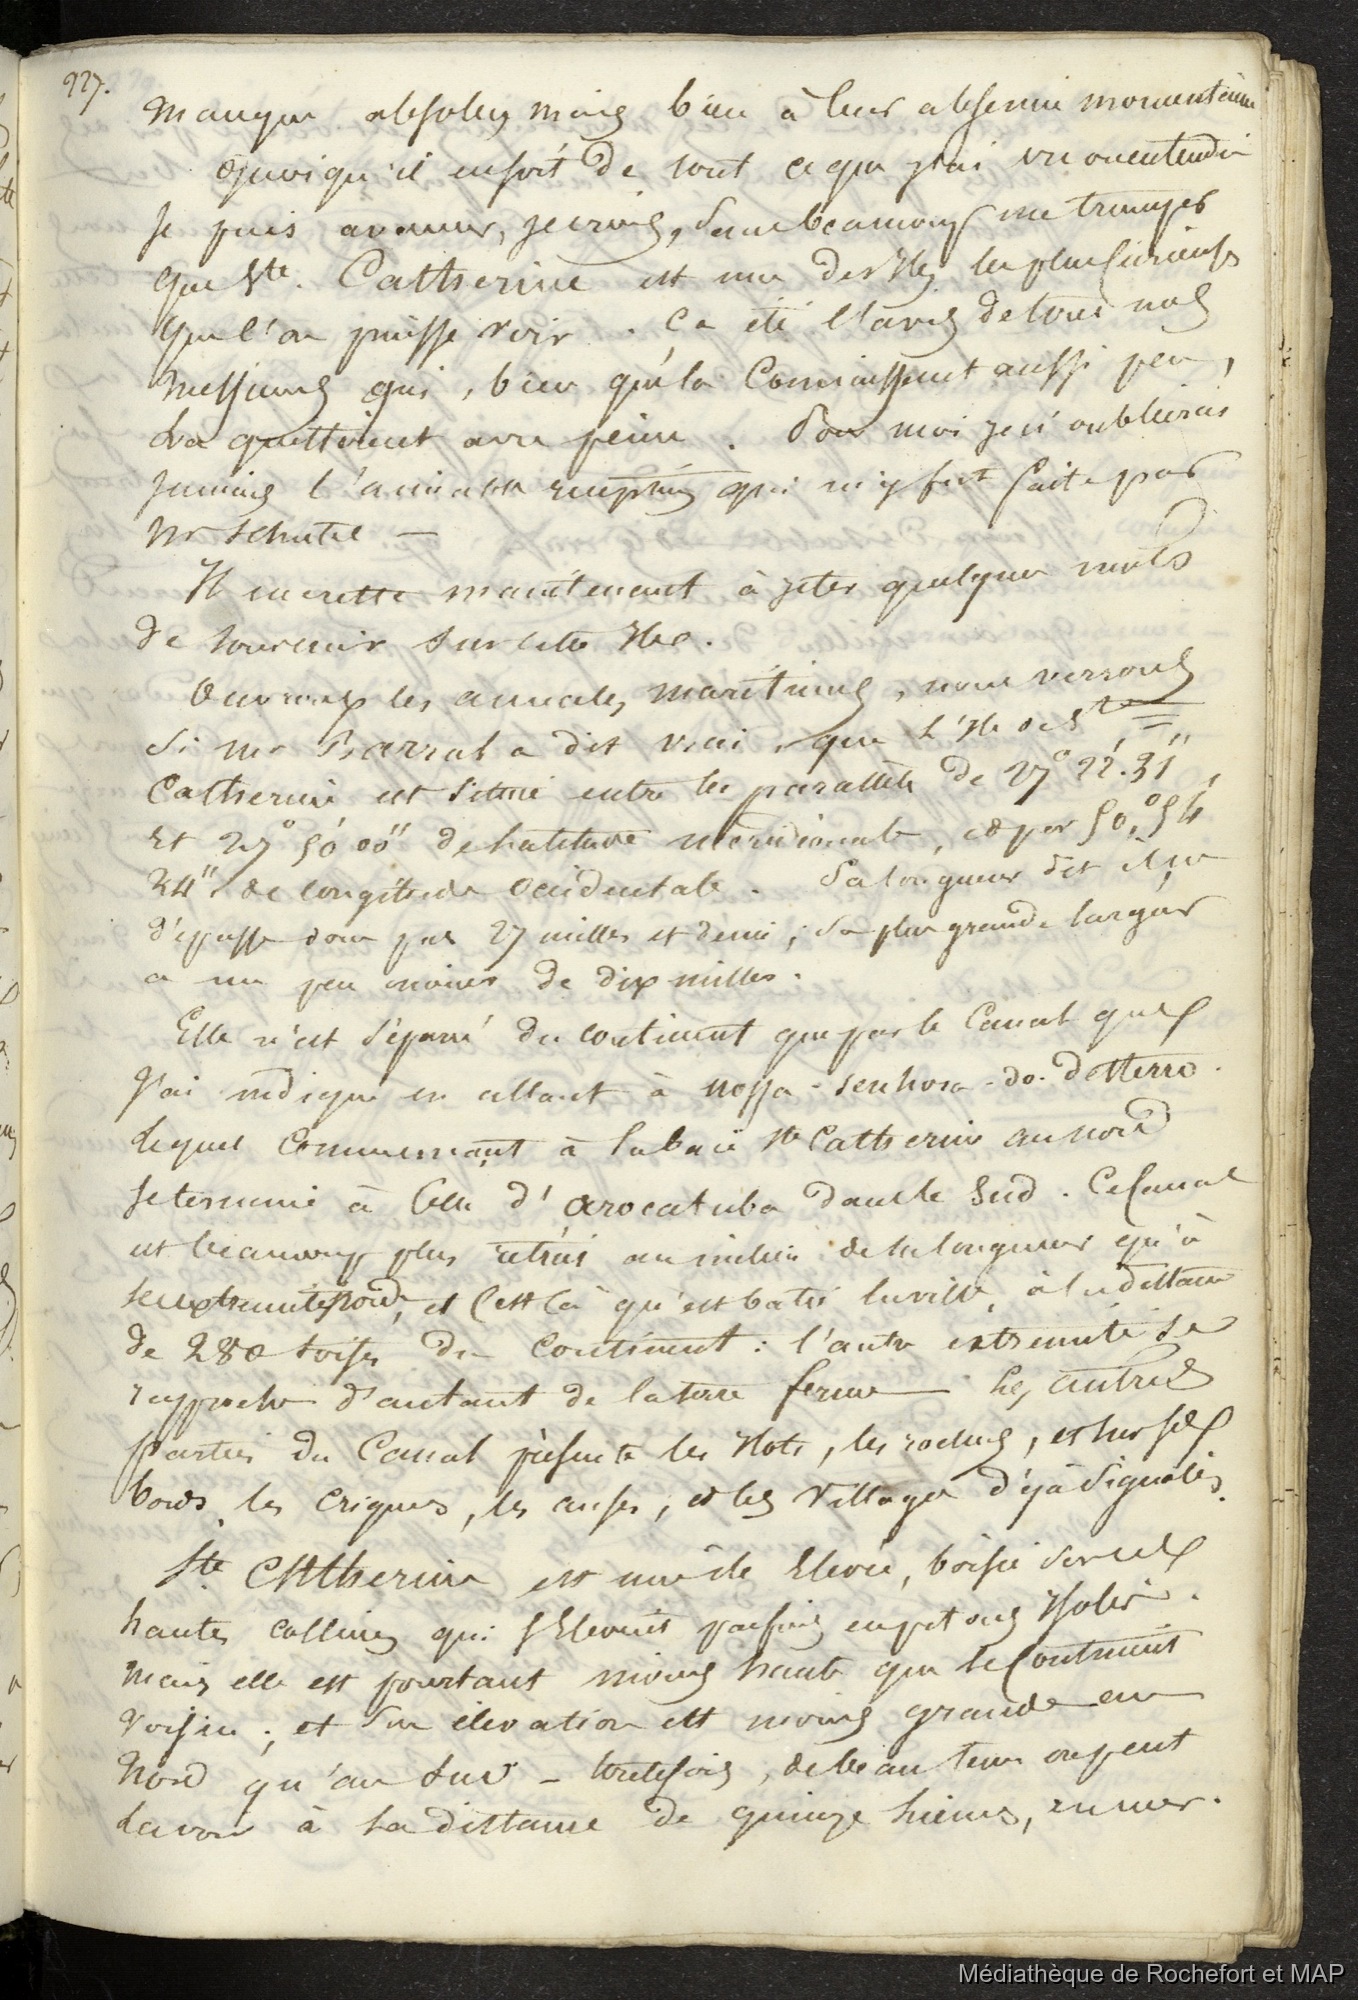 227.
manque absolu, mais bien à leur absence momentanée
Quoiqu'il en soit de tout ce que j'ai vu ou entendu
Je puis avancer, je crois, sans beaucoup me tromper
que Ste. Catherine est une des Iles les plus curieuses
que l'on puisse voir. Ca été l'avis de tous nos
messieurs qui, bien qu'la connaissant aussi peu,
La quittèrent avec peine. Pour moi je n'oublierai
jamais l'aimable reception qui m'y fut faite par
Mr Schutel —
Il me reste maintenant à jeter quelques mots
de souvenir sur cette Ile.
Ouvrons les annales maritimes, nous verrons
Si Mr Barral a dit vrai, que L'Ile de Ste
Catherine est située entre les parallèles de 27° 22'. 31",
Et 27° 50' 00" de latitude méridionale, et par 50.° 54'
34" de longitude Occidentale. Sa longueur dit il ne
dépasse donc pas 27 milles et demi; Sa plus grande largeur
a un peu moins de dix milles.
Elle n'est séparée du continent que par le Canal que
J'ai indiqué en allant à Nossa-Senhora-do-Desterro.
Lequel commençant à la baie Ste Catherine au nord
se termine à Celle d'arocatuba dans le Sud. Ce Canal
est beaucoup plus étroit au milieu de sa longueur qu'à
ses extremités nord, et C'est là qu'est batie la ville, à la distance
de 280 toises du Continent: l'autre extremité se
rapproche d'autant de la terre ferme — Les autres
parties du Canal présente les Ilots, les roches, et sur ses
bords les criques, les anses, et les Villages déjà signalés.
Ste Catherine est une île Elevée, boisée sur ses
hautes collines qui s'Elèvent parfois en pitons Isolés.
Mais elle est pourtant moins haute que le Continent
voisin; et son élévation est moins grande au
Nord qu'au Sud — toutefois, de beau tems on peut
La voir à la distance de quinze lieues, en mer.
Médiathèque de Rochefort et MAP